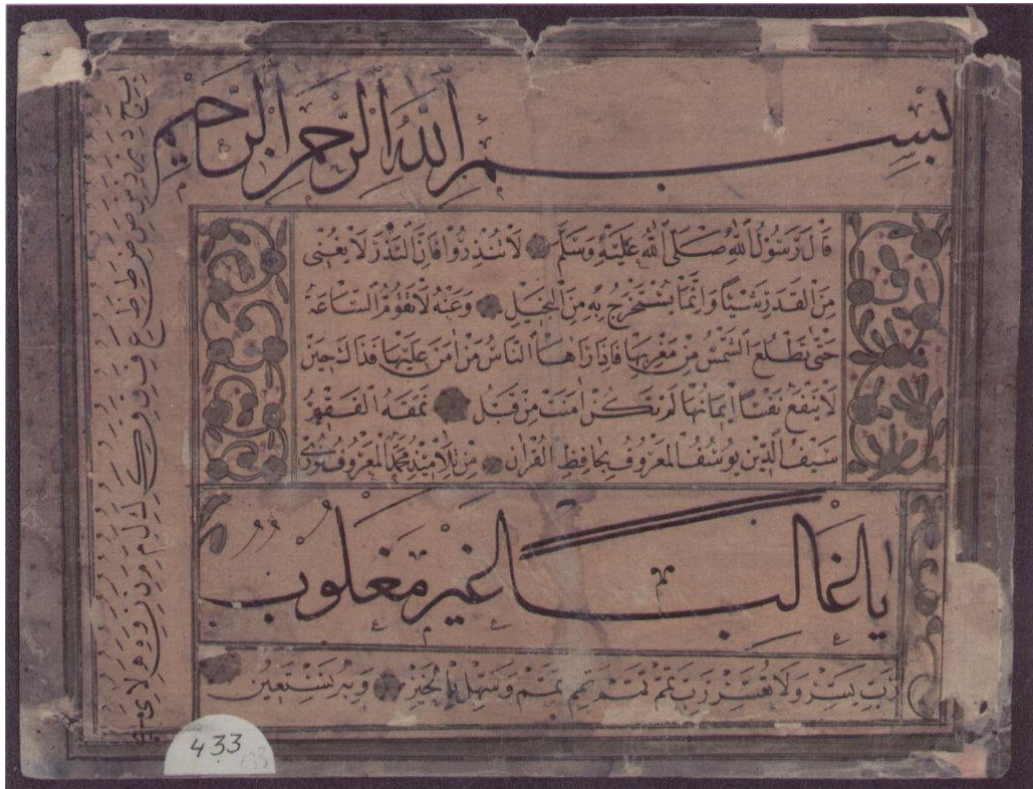 بسم الله الرحمن الرحيم
قال رسول الله صلى الله عليه وسلم لا تنذروا فان النذر لا يغنى
من القدر شيئا وانما يستخرج به من البخيل وعنه لا تقوم الساعة
حتى تطلع الشمس من مغربها فاذا رآها الناس من امن عليها فذلك حين
لا ينفع نفسا ايمانها لم تكن امنت من قبل نمقه الفقير
سيف الدين يوسف المعروف بحافظ القران من تلاميذ محمد المعروف
يا غالبا غير مغلوب
رب يسر ولا تعسر رب تمم تمم وسهل بالخير وبه نستعين
433